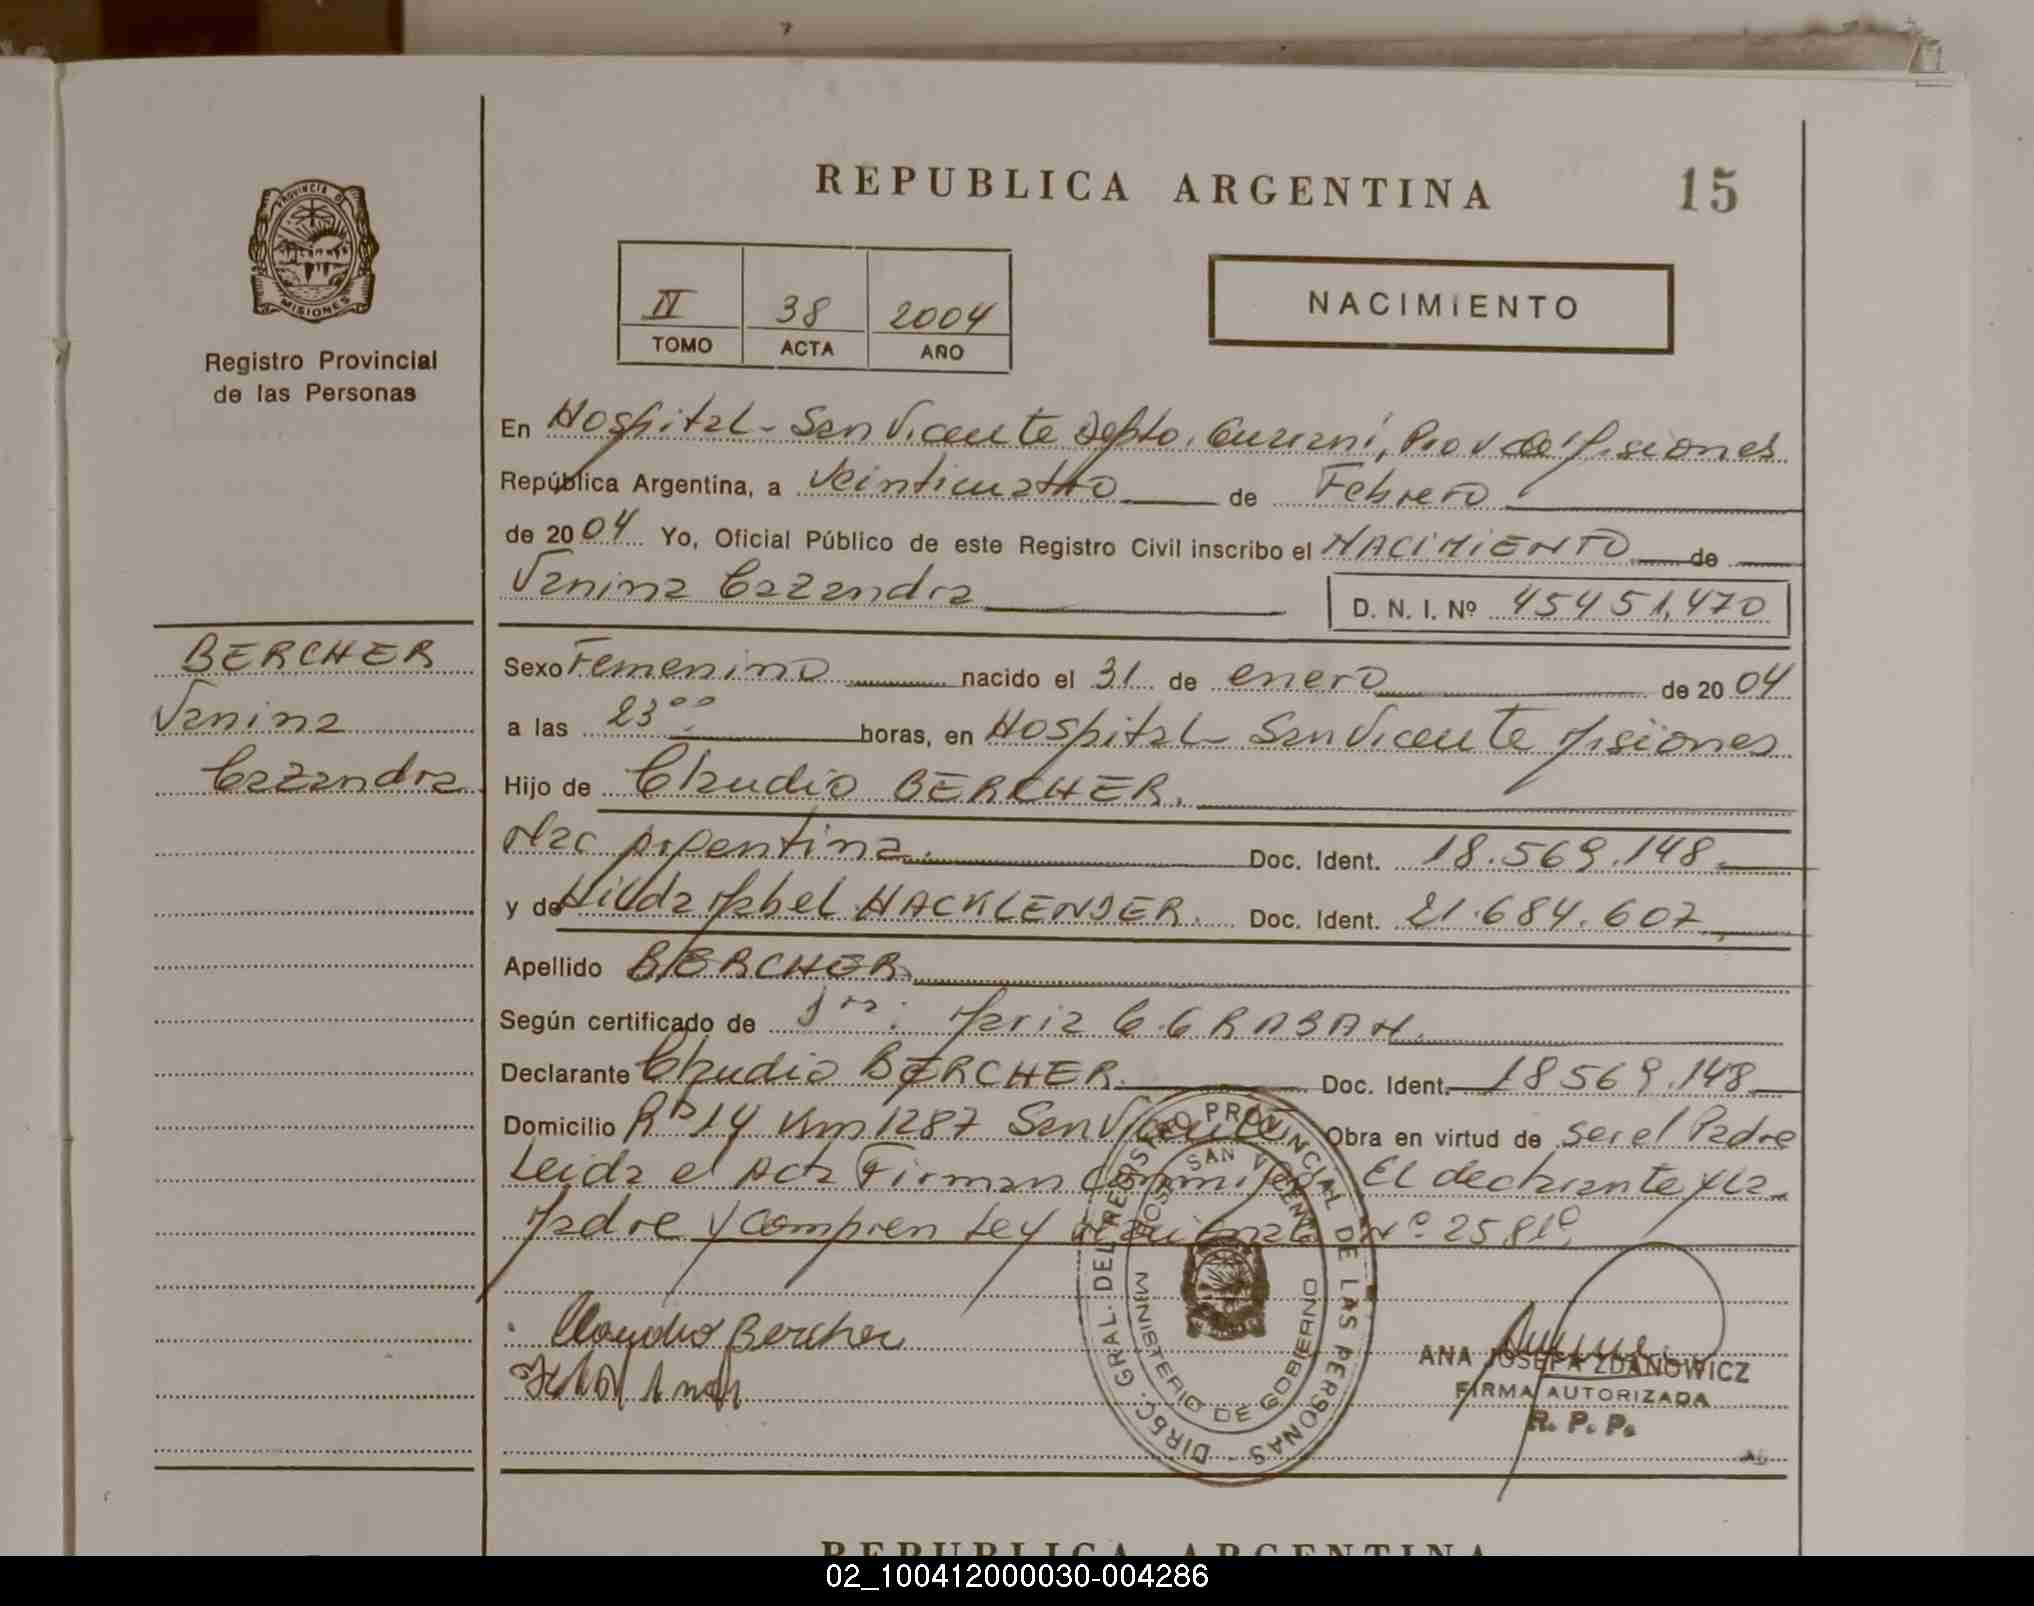 REPUBLICA ARGENTINA
15
PROVINCIA DE
MISIONES
Registro Provincial
de las Personas
II 38 2004
TOMO ACTA AÑO
NACIMIENTO
En Hospital - San Vicente Depto. Guaraní, Prov de Misiones
República Argentina, a Veinticuatro de Febrero
de 2004 Yo, Oficial Público de este Registro Civil inscribo el NACIMIENTO de
Vanina Cazandra D. N. I. Nº 45451.470
BERCHER
Vanina
Cazandra
Sexo Femenino nacido el 31 de enero de 2004
a las 23 00 horas, en Hospital San Vicente Misiones
Hijo de Claudio BERCHER.
Nac Argentina. Doc. Ident. 18.569.148.
y de Hilda Mabel HACKLENDER. Doc. Ident. 21.684.607
Apellido BERCHER.
Según certificado de Maria C.
Declarante Claudio BERCHER. Doc. Ident. 18569.148
Domicilio Rta 14 Km 1287 San Vicente Obra en virtud de ser el Padre
Leida el Acta Firman Conmigo El declarante y la
Madre y Ley Nº
Claudio Bercher
DIREC. GRAL. DEL REGISTRO PROVINCIAL DE LAS PERSONAS
SAN VICENTE
MINISTERIO DE GOBIERNO
ANA JOSEFA ZDANOWICZ
FIRMA AUTORIZADA
R. P. P.
REPUBLICA ARGENTINA
02_100412000030-004286